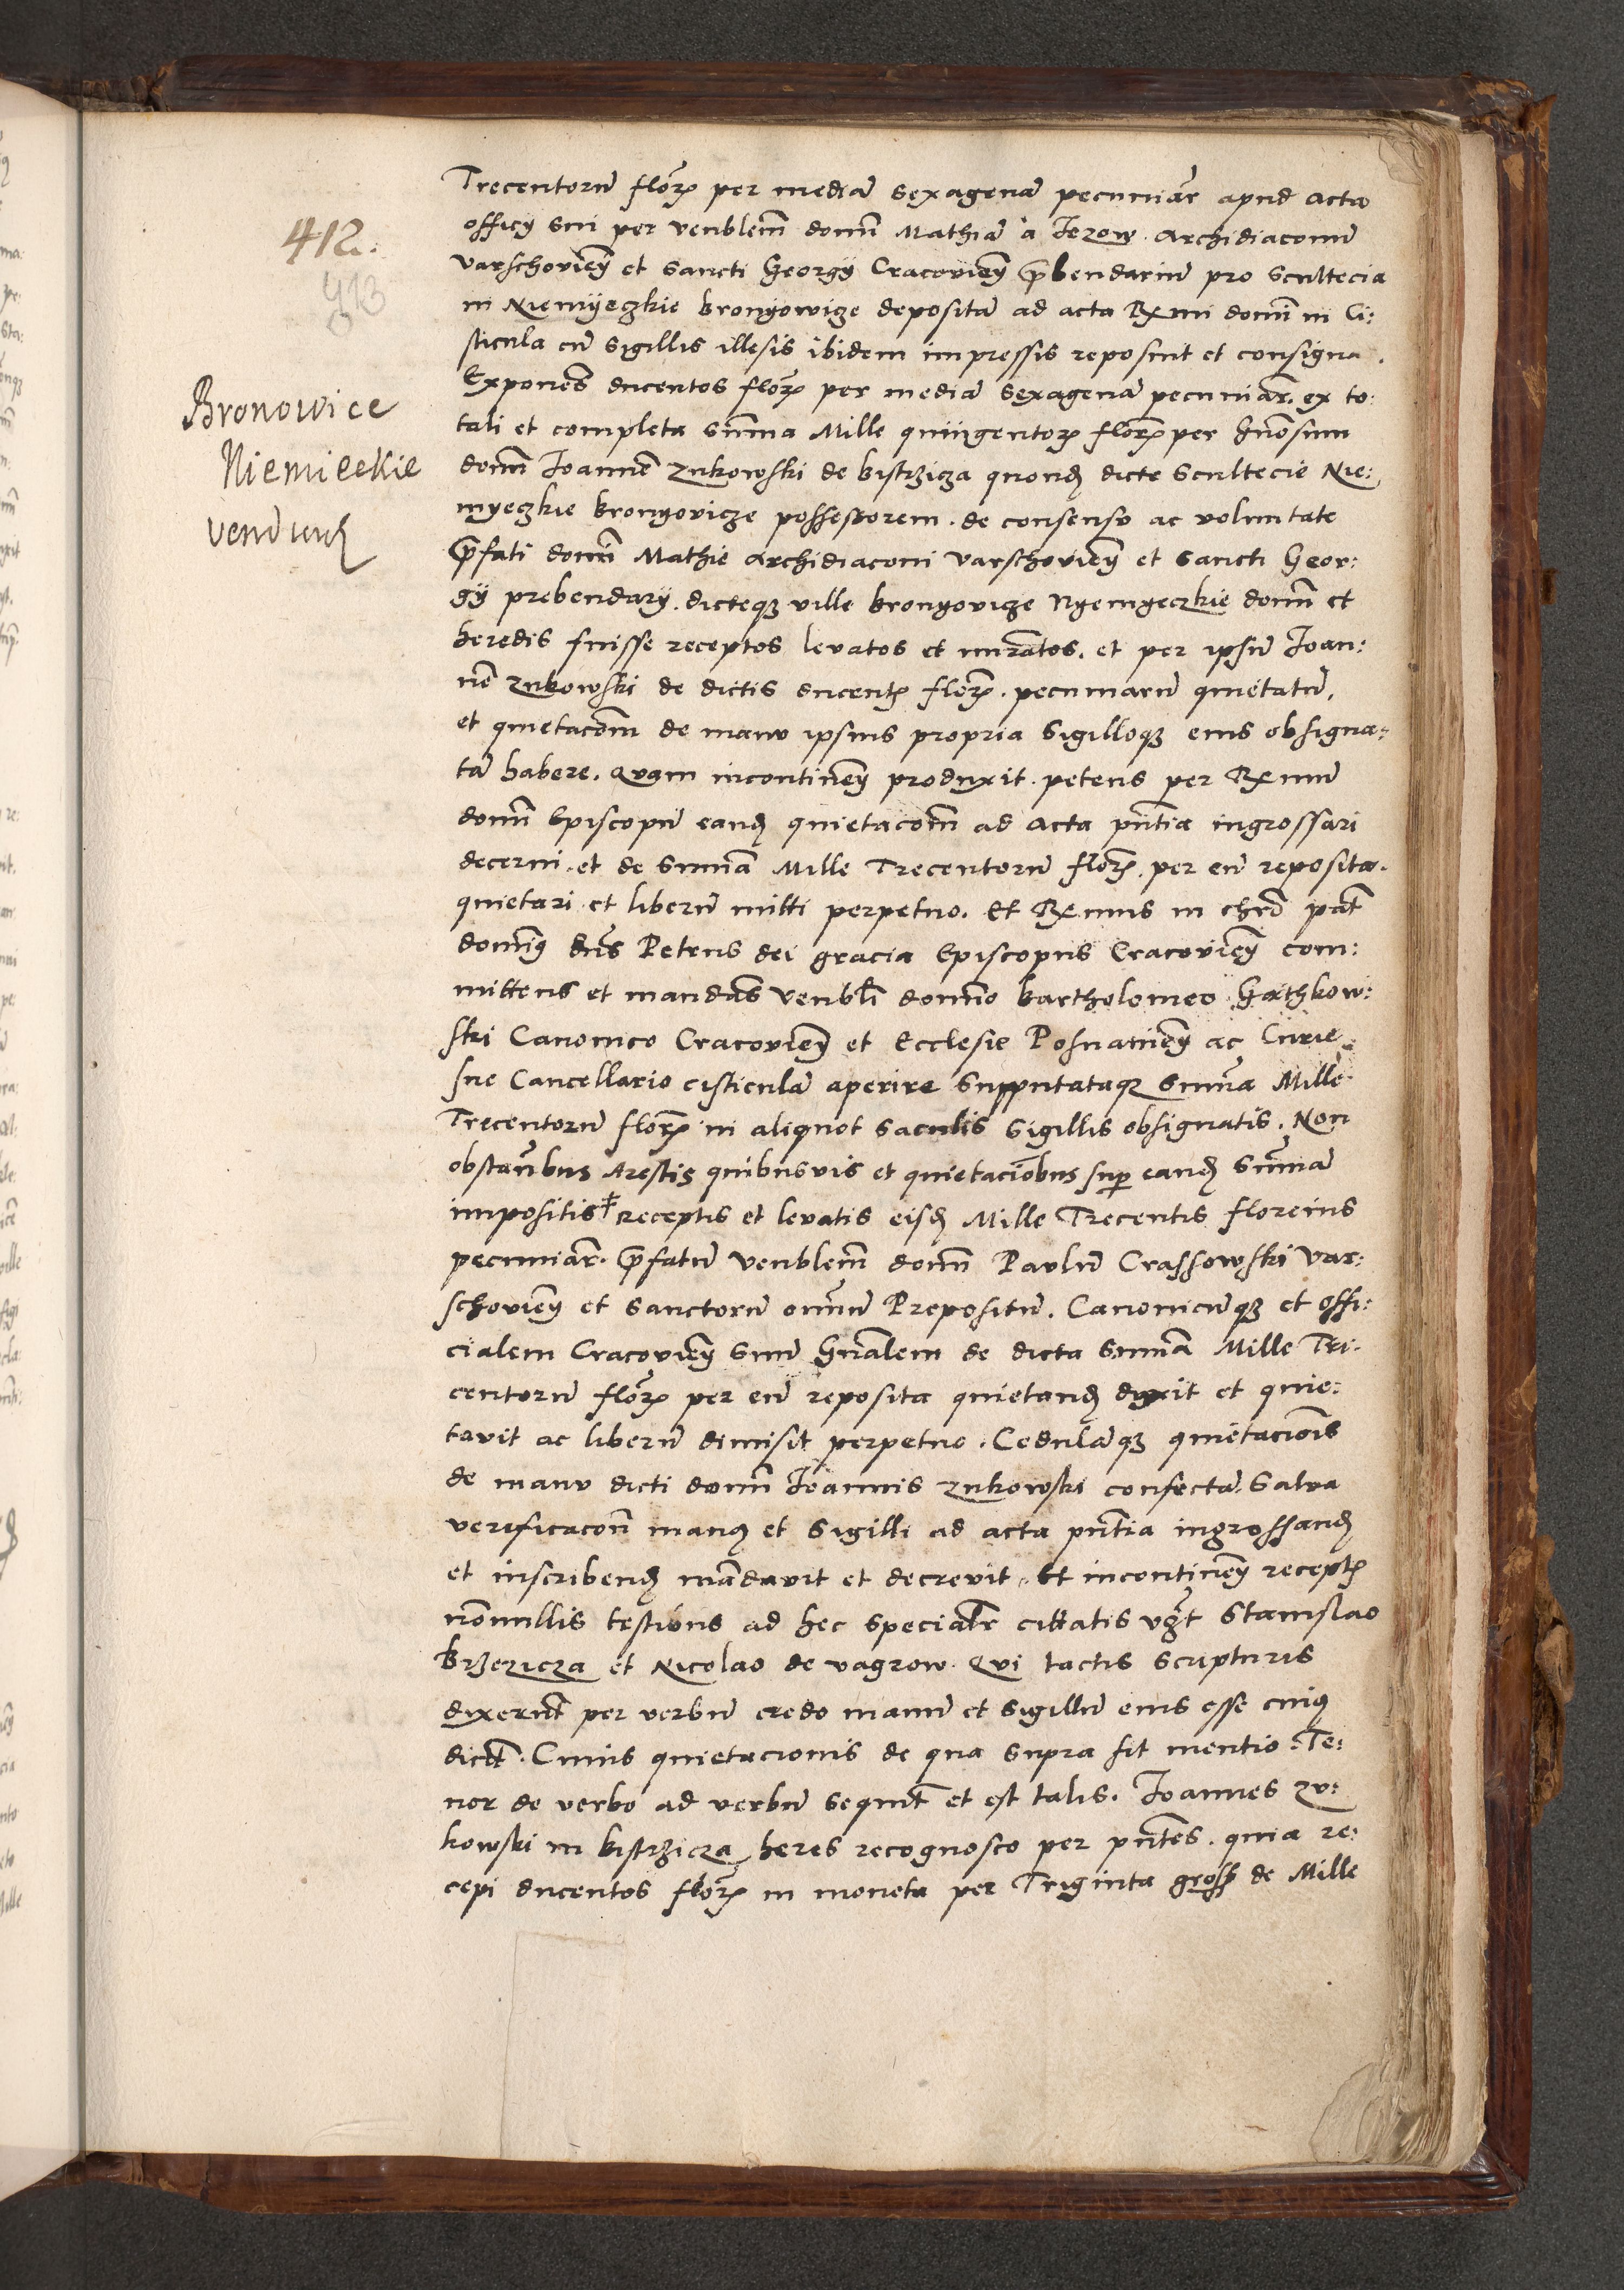 412.
913
Bronowice
Niemieckie
venduntur
Trecentorũ florz per mediã sexagenã pecuniar apud acta
officij sui per venblem domĩ Mathiã à Jezow Archidiaconũ
varschovieñ et sancti Georgij Cracovieñ p̃bendariũ pro scultecia
in Niemÿeczkie bronyowicze depositã ad acta Rxmi domĩ in Ci:
sticula cũ sigillis illesis ibidem impressis reposuit et consigna.
Exponẽs ducentos florz per mediã sexagenã pecuniar. ex to:
tali et completa sum̃a Mille quiingentorz florz per gñosum
domĩ Joannẽ Zukowski de bistrzicza quond dicte scultecie Nie:
myeczkie bronyovicze possessorem. de consensv ac voluntate
p̃fati domĩ Mathie Archidiaconi varschovieñ et sancti Geor:
gij prebendarij. dicteqz ville bronyovicze Nyemyeczkie domĩ et
heredis fuisse receptos levatos et nurãtos. et per ipsũ Joan:
nẽ Zukowski de dictis ducentz florz. pecuniarũ quietatũ,
et quietacoñm de manv ipsius propria sigilloqz eius obsigna:
tã habere. Qvam incontineñ produxit. petens per Rxmũ
domĩ Episcopũ eand quietacom̃ ad acta pñtia ingrossari
decerni. et de sum̃a Mille Trecentorũ florz. per eũ reposita.
quietari et liberũ mitti perpetuo. Et Rxmus in chrõ pat̃
domiñ dñs Petrus dei gracia Episcopus Cracovieñ com:
mittens et mandãs venbli domĩo bartholomeo Gathkow:
ski Canonico Cracovieñ et Ecclesie Posnanieñ ac Curie
sue Cancellario cisticulã aperire suppntataqz sum̃a Mille
Trecentorũ florz in aliquot saculis sigillis obsignatis. Non
obstañbus Arestis quibusvis et quietaciõbus sup eand sum̃ã
impositis receptis et levatis eisd Mille Trecentis florenis
pecuniar. p̃fatũ venblem domĩ Pavlũ Crassowski var:
schovieñ et sanctorũ om̃ũ Prepositũ. Canonicũqz et offi:
cialem Cracovieñ suũ gñalem de dicta sum̃a Mille Tri.
centorũ florz per eũ reposita quietand dyxit et quie:
tavit ac liberũ dimisit perpetuo. Cedulãqz quietaciõis
de manv dicti domĩ Joannis Zukowski confectã. Salva
verificacoñ manq et sigilli ad acta pñtia ingrossand
et inscribend mãdavit et decrevit. Et incontineñ receptz
nõnullis testibus ad hec specialr cittatis vz̃t Stanislao
Brzezicza et Nicolao de vagrow. Qvi tactis scripturis
dixerũt per verbũ credo manũ et sigillũ eius esse cuiq
dict̃. Cuius quietacionis de qua supra fit mentio. Te:
nor de verbo ad verbũ sequit̃ et est talis. Joannes Zv:
kowski in bistrzicza heres recognosco per pñtes. quia re:
cepi ducentos florz in moneta per Triginta gross de Mille